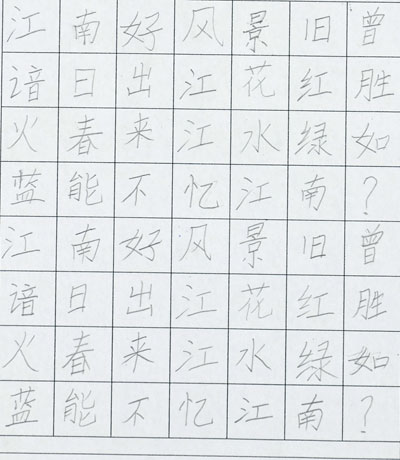 江南好风景旧曾
谙日出江花红胜
火春来江水绿如
蓝能不忆江南？
江南好风景旧曾
谙日出江花红胜
火春来江水绿如
蓝能不忆江南？